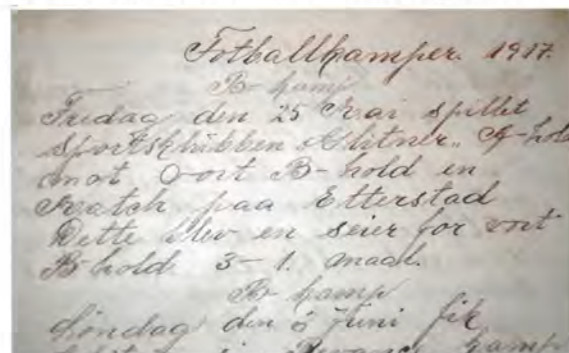 Fotballkamper. 1917.
B-kamp
Fredag den 25 Mai spillet
Sportsklubben A-hold
mot vort B-hold en
Match paa Etterstad
Dette blev en seier for vort
B-hold 3-1. maal.
B-kamp
Søndag den Juni fik
kamp